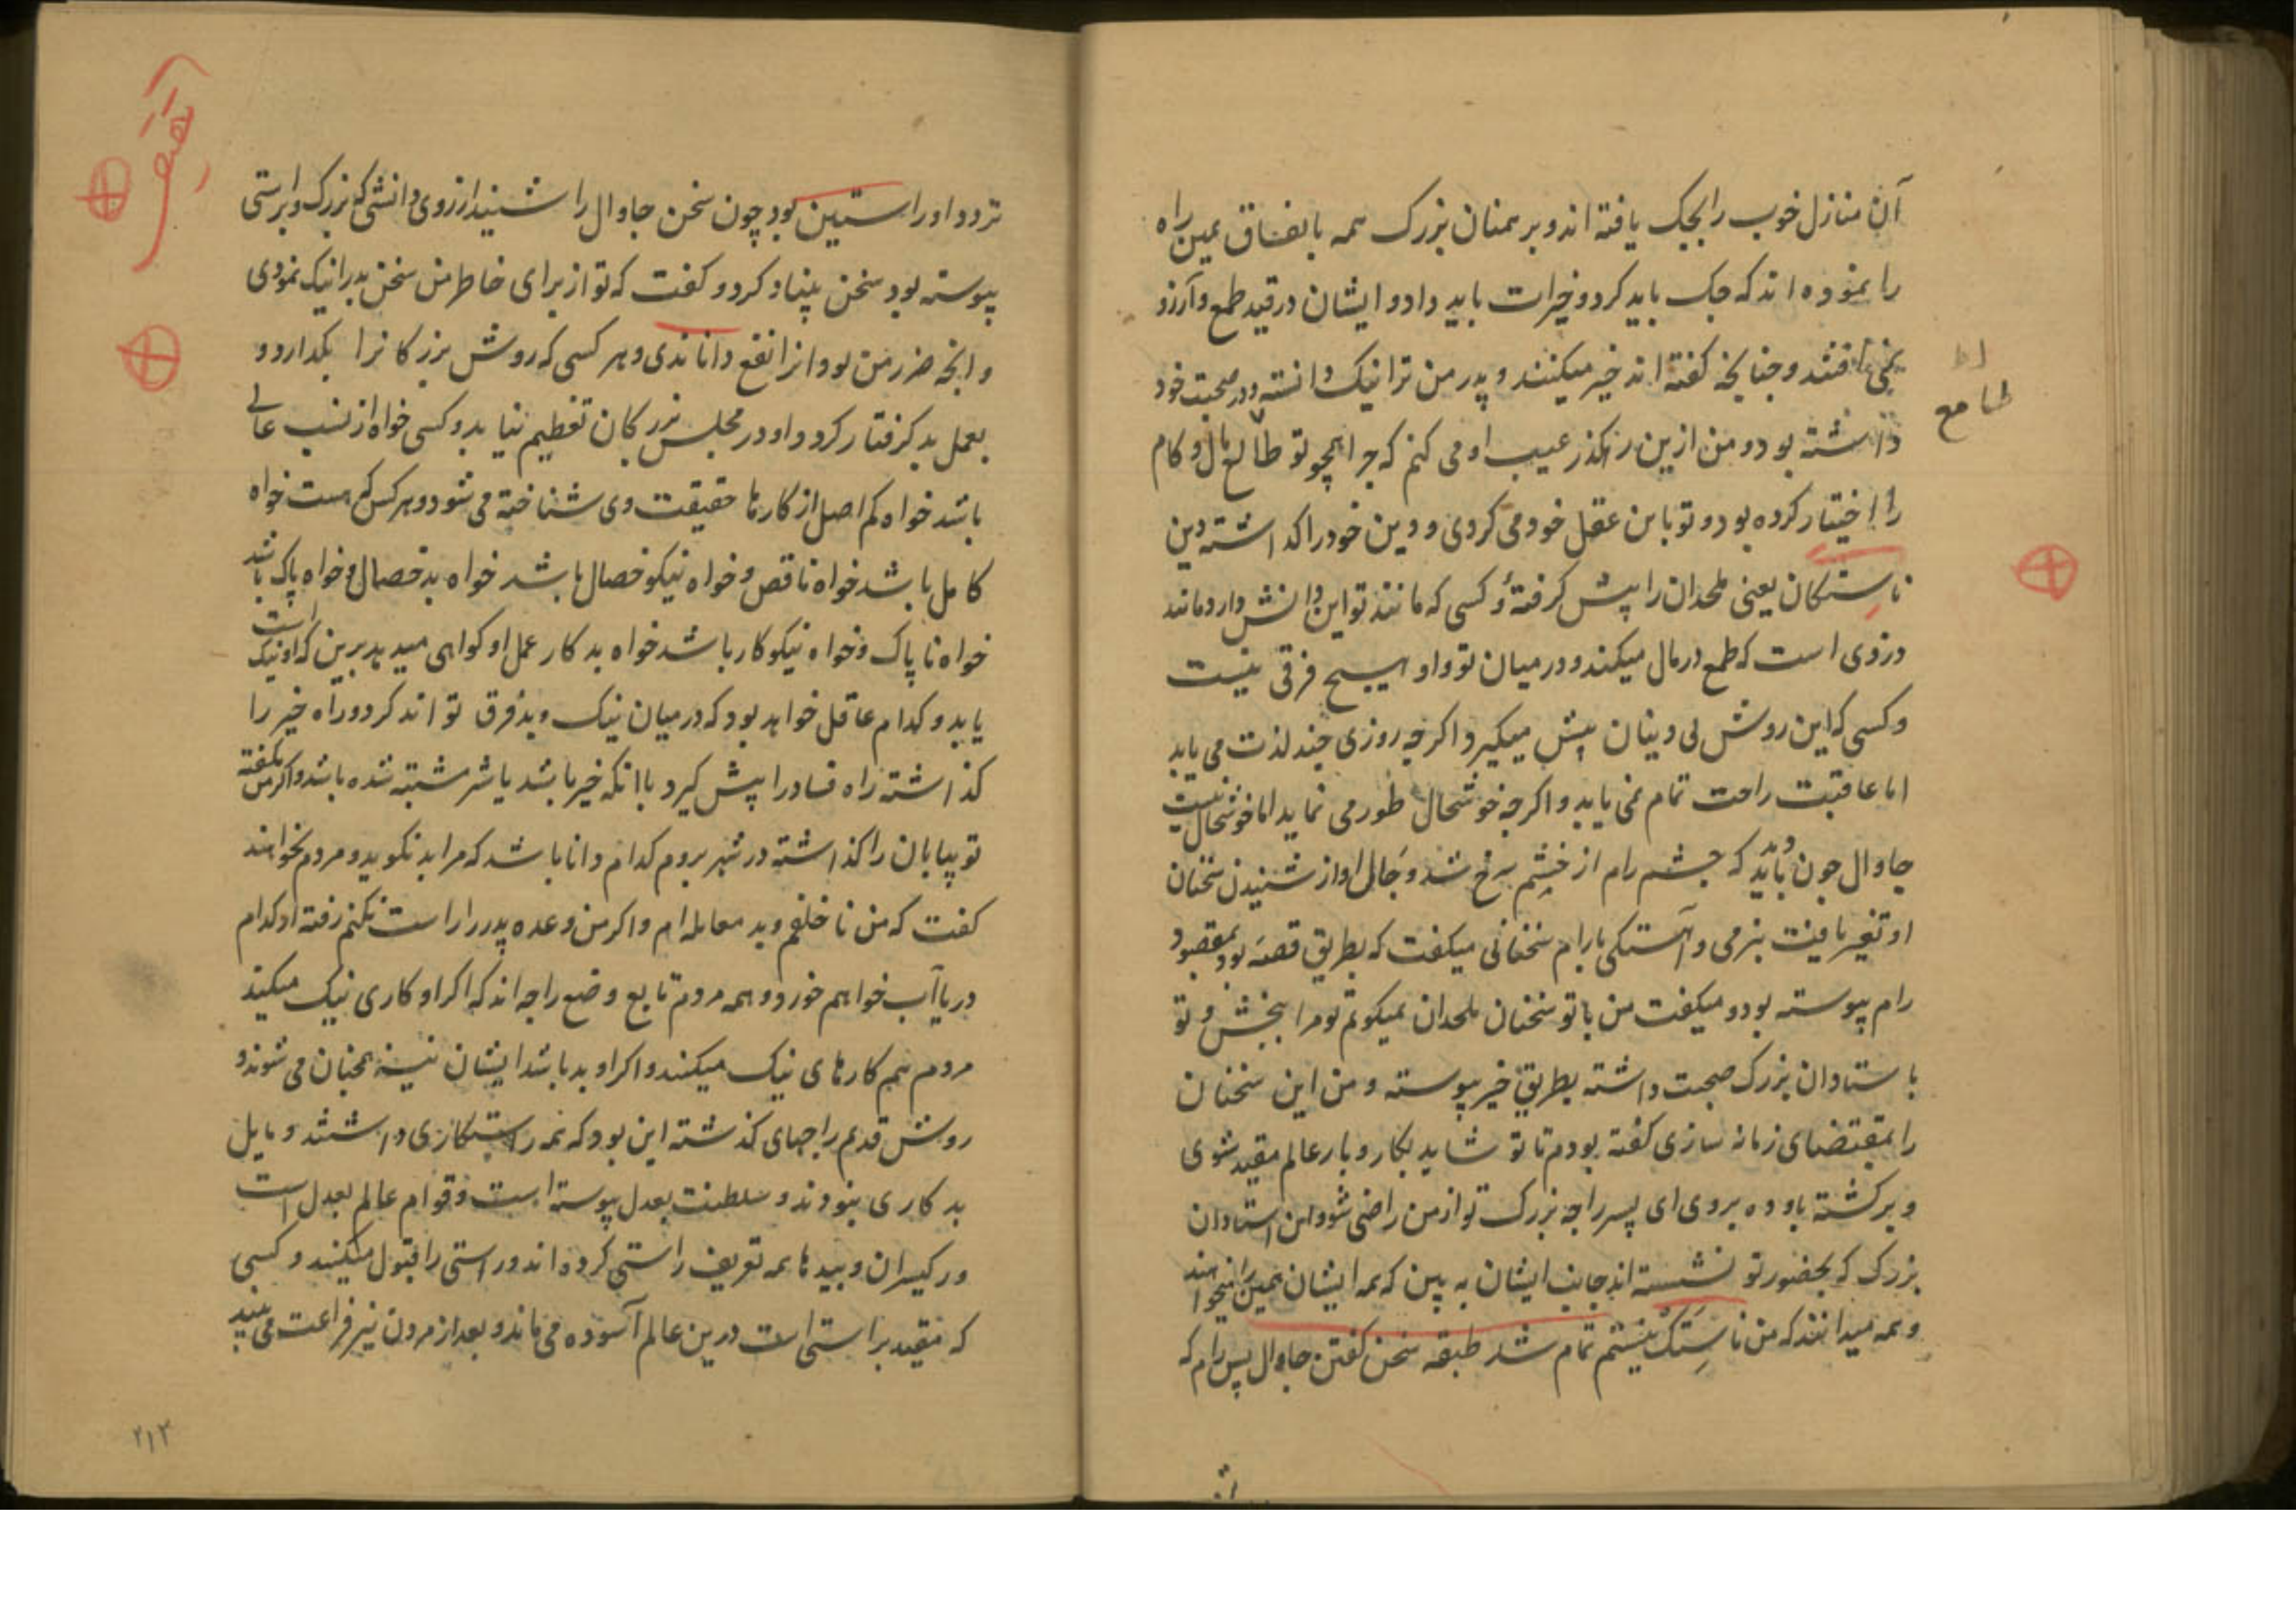 آن منازل خوب را بجک یافته اند و برهمنان بزرک همه باتفاق همین راه
را نموده اند که جک باید کرد و خیرات باید داد و ایشان در قید طمع و آرزو
نمی افتند و چنانچه کفته اند خیر میکنند و پدر من ترا نیک دانسته و در صحبت خود
داشته بود و من ازین رهکذر عیب او می کنم که چرا همچو تو طالع مال و کام
را اختیار کرده بود و تو باین عقل خود می کردی و دین خود را کذاشته دین
ناستکان یعنی ملحدان را پیش کرفتهٔ و کسی که مانند تو این دانش دارد مانند
دزدی است که طمع در مال میکند و در میان تو و او هیچ فرقی نیست
و کسی که این روش بی دینان پیش میکیرد اکرچه روزی چند لذت می یابد
اما عاقبت راحت تمام نمی یابد و اکرچه خوشحال طور می نماید اما خوشحال نیست
جاوال چون دید که چشم رام از خشم سرخ شد و حال او از شنیدن سخنان
او تغیر یافت بنرمی و آهستکی با رام سخنانی میکفت که بطریق قصه بود بمقصود
رام پیوسته بود و میکفت من با تو سخنان ملحدان نمیکویم تو مرا ببخش و تو
با ستادان بزرک صحبت داشته بطریق خیر پیوسته و من این سخنان
را بمقتضای زمانه سازی کفته بودم تا تو شاید بکار و بار عالم مقید شوی
و برکشته باوده بروی ای پسر راجه بزرک تو از من راضی شو و این استادان
بزرک که بحضور تو نشسته اند جانب ایشان به بین که همه ایشان همین را میخواهند
و همه میدانند که من ناستک نیستم تمام شد طبقه سخن کفتن جاوال پس رام که
طامع
تردد او راستین بود چون سخن جاوال را شنید از روی دانشی که بزرک و براستی
پیوسته بود سخن بنیاد کرد و کفت که تو از برای خاطر من سخن بد را نیک نمودی
و انچه ضرر من بود انرا نفع داناندی و هر کسی که روش بزرکانرا بکذارد و
بعمل بد کرفتار کردد او در مجلس بزرکان تعظیم نیابد و کسی خواه از نسب عالی
باشد خواه کم اصل از کارها حقیقت وی شناخته می شود و هر کس که هست خواه
کامل باشد خواه ناقص و خواه نیکو خصال باشد خواه بد خصال و خواه پاک باشد
خواه ناپاک و خواه نیکو کار باشد خواه بد کار عمل او کواهی میدهد برین که او نیک است
یا بد و کدام عاقل خواهد بود که در میان نیک و بد فرق تواند کرد و راه خیر را
کذاشته راه فساد را پیش کیرد با انکه خیر باشد یا شر مشتبه شده باشد و اکر من بکفته
تو بیابان را کذاشته در شهر بروم کدام دانا باشد که مرا بد نکوید و مردم نخواهند
کفت که من ناخلفم و بد معامله ام و اکر من وعده پدر را راست نکنم رفته از کدام
دریا آب خواهم خورد و همه مردم تابع وضع راجه اند که اکر او کاری نیک میکند
مردم هم کارهای نیک میکنند و اکر او بد باشد ایشان نیز همچنان می شوند و
روش قدیم راجهای کذشته این بود که همه راستکاری داشتند و مایل
بد کاری نبودند و سلطنت بعدل پیوسته است و قوام عالم بعدل است
و رکیسران و بیدها همه تعریف راستی کرده اند و راستی را قبول میکنند و کسی
که مقید براستی است درین عالم آسوده می ماند و بعد از مردن نیز فراغت می بیند
۲۱۳